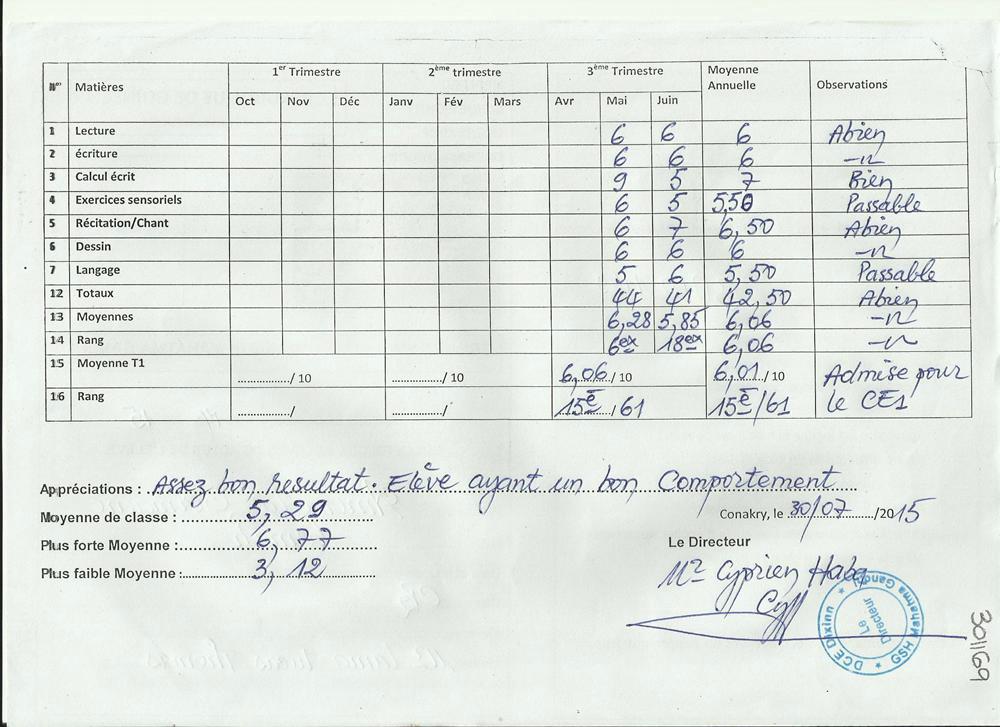 N° Matières 1er Trimestre 2ème trimestre 3ème Trimestre Moyenne Annuelle Observations
Oct Nov Déc Janv Fév Mars Avr Mai Juin
1 Lecture 6 6 6 Abien
2 écriture 6 6 6 -n-
3 Calcul écrit 9 5 7 Bien
4 Exercices sensoriels 6 5 5,50 Passable
5 Récitation/Chant 6 7 6,50 Abien
6 Dessin 6 6 6 -n-
7 Langage 5 6 5,50 Passable
12 Totaux 44 41 42,50 Abien
13 Moyennes 6,28 5,85 6,06 -n-
14 Rang 6ex 18ex 6,06 -n-
15 Moyenne T1 ............../ 10 ............../ 10 6,06 / 10 6,01 / 10 Admise pour
16 Rang ............../ ............../ 15è / 61 15è/61 le CE1
Appréciations : Assez bon resultat. Elève ayant un bon Comportement
Moyenne de classe : 5,29
Conakry, le 30/07 /2015
Plus forte Moyenne : 6,77
Le Directeur
Plus faible Moyenne : 3,12
Mr Cyprien Haba
DCE Dixinn * GSH Mahatma Gandhi *
Le
Directeur
301169